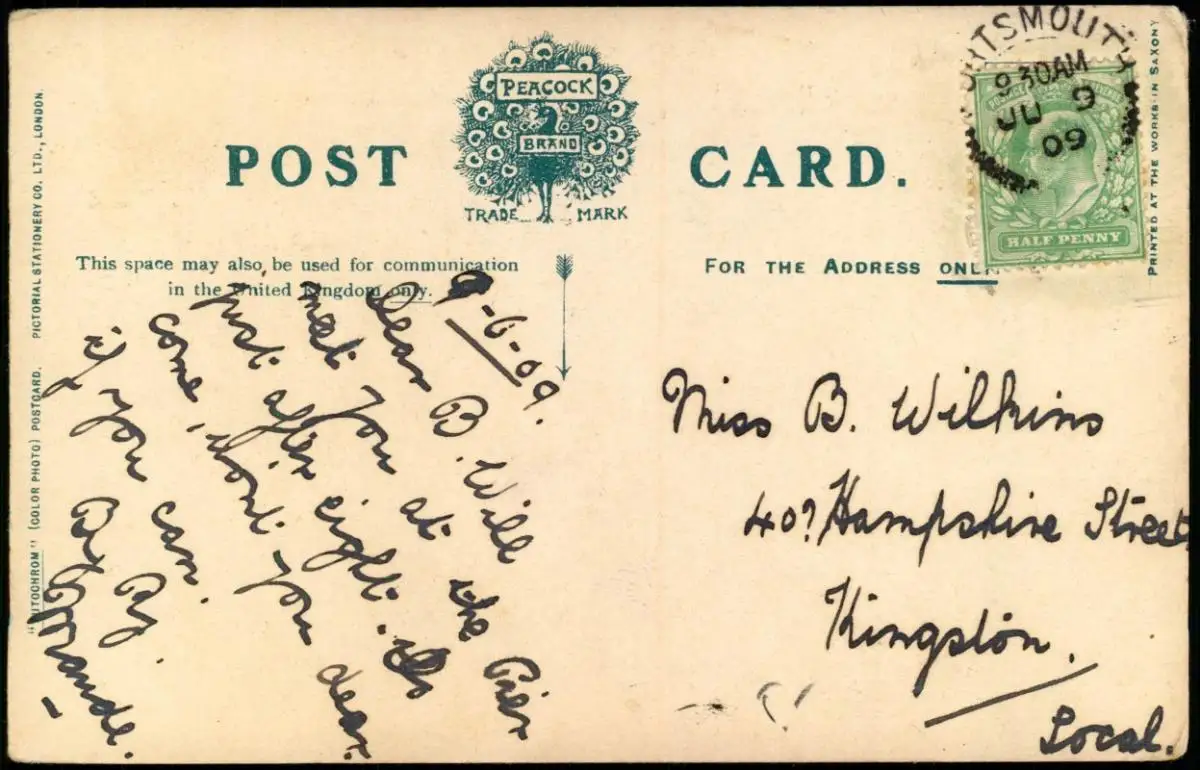 POST CARD.
PEACOCK
BRAND
TRADE MARK
PORTSMOUTH
9 30AM
JU 9
09
HALF PENNY
This space may also be used for communication
in the United Kingdom only.
FOR THE ADDRESS ONLY.
9-6-09.
Dear B. Will
meet you at the Pier
just after eight. Do
come, wont you dear.
if you can.
By By
Maude.
Miss B. Wilkins
40? Hampshire Street
Kingston.
Local.
"AUTOCHROM" (COLOR PHOTO) POSTCARD. PICTORIAL STATIONERY CO. LTD., LONDON.
PRINTED AT THE WORKS IN SAXONY